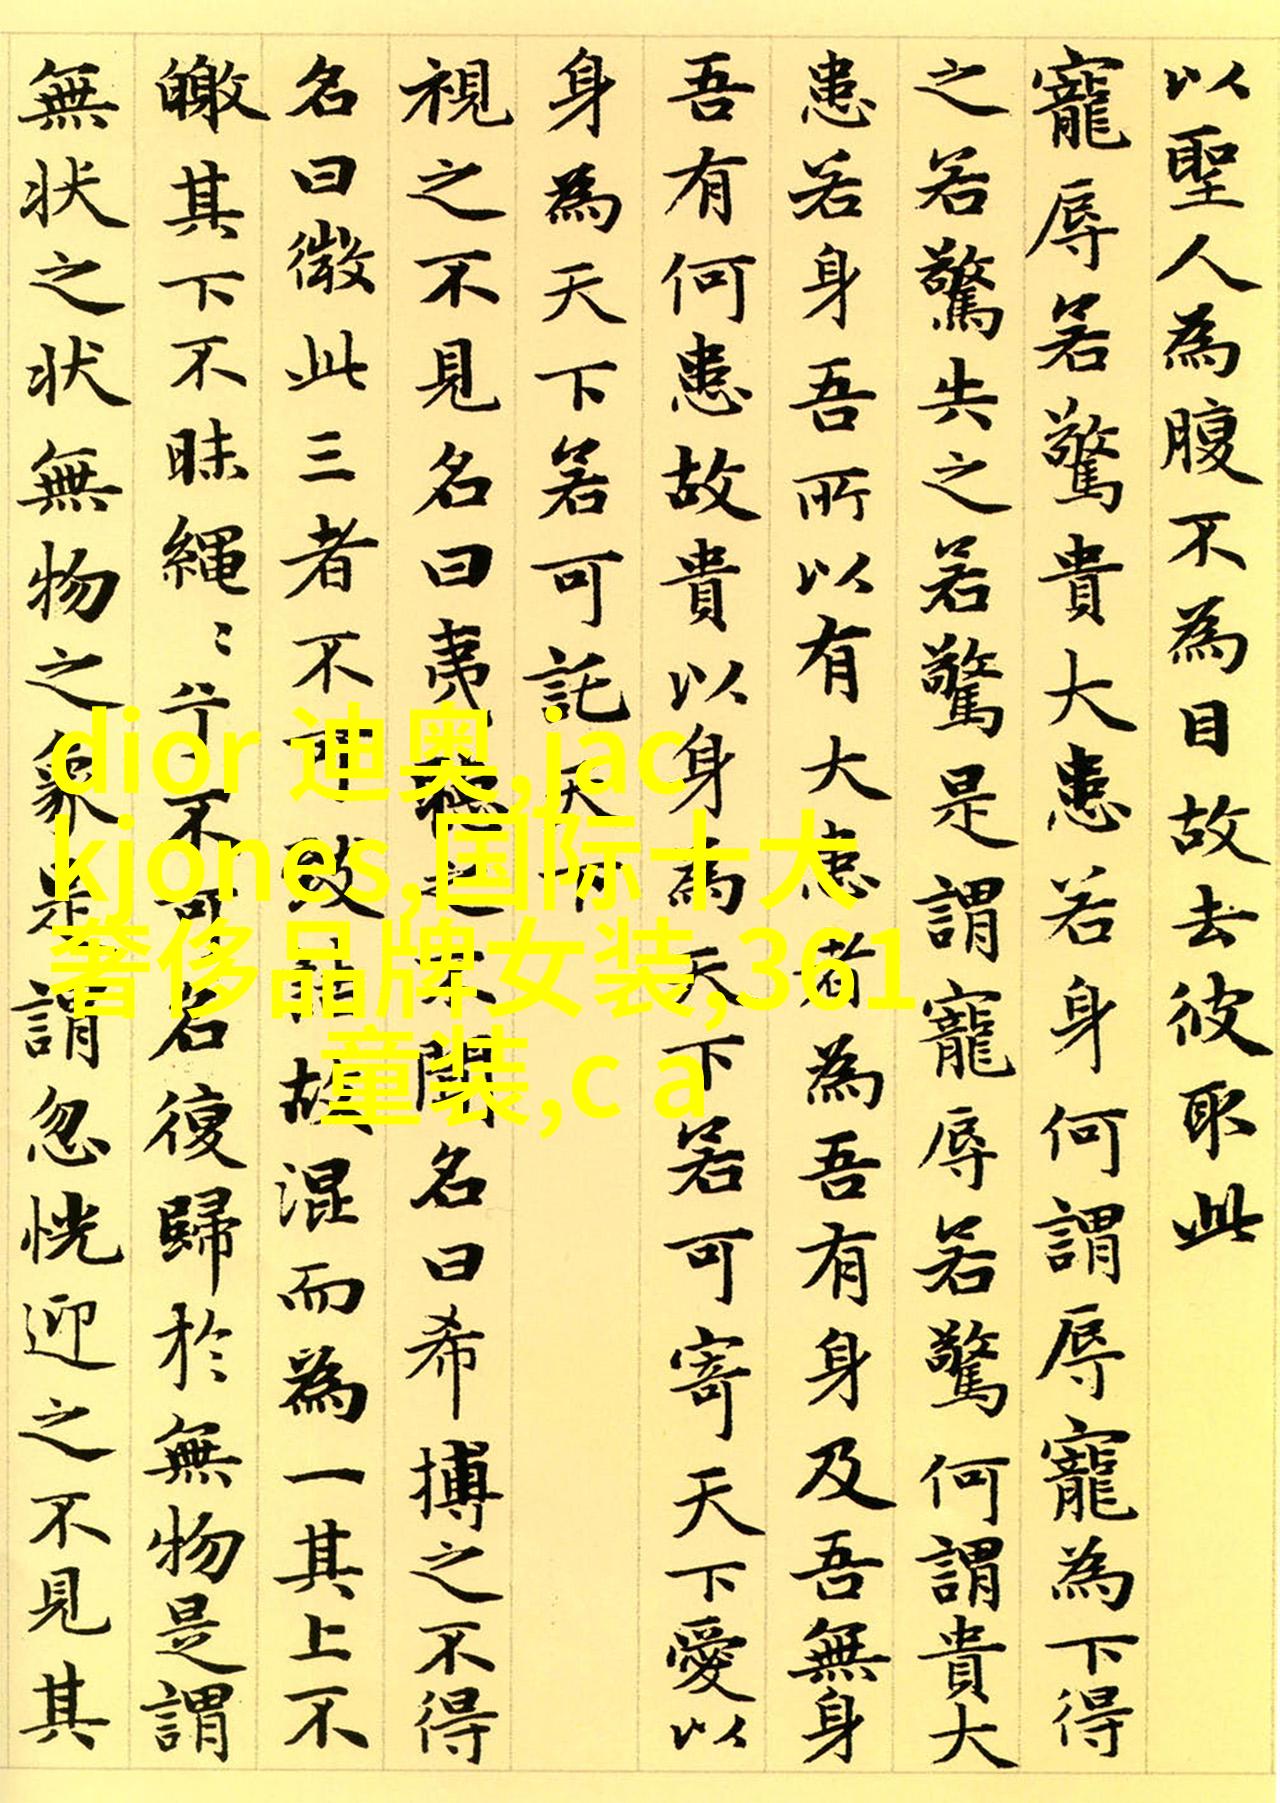 以聖人為腹不為目故去彼取此
寵辱若驚貴大患若身何謂辱寵為下得
之若驚失之若驚是謂寵辱若驚何謂貴大
患若身吾所以有大患者為吾有身及吾無身
吾有何患故貴以身為天下若可寄天下愛以
身為天下若可託天下
視之不見名曰夷聽之不聞名曰希搏之不得
名曰微此三者不可致詰故混而為一其上不
皦其下不昧繩〻兮不可名復歸於無物是謂
無状之状無物之象是謂忽恍迎之不見其
dior 迪奥,jac
kjones,国际十大
奢侈品牌女装,361
童装,c a